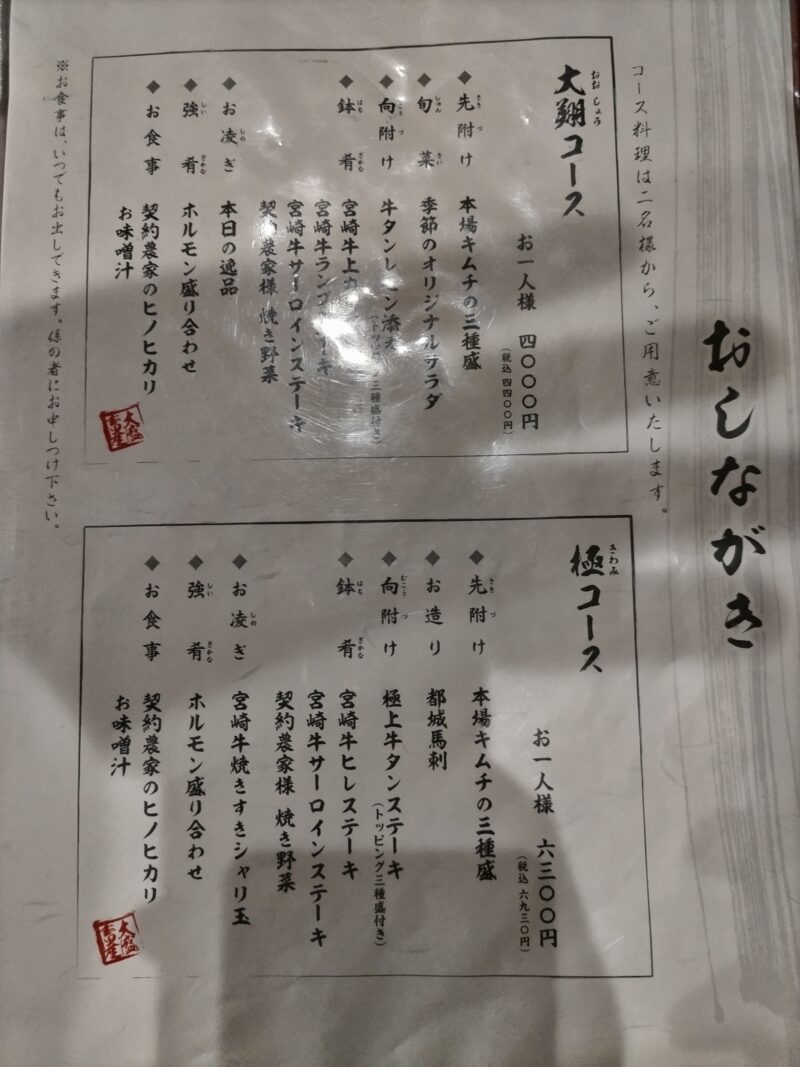 おしながき
コース料理は二名様から、ご用意いたします。
大翔コース
おおしょう
お一人様 四〇〇〇円
(税込 四四〇〇円)
◆先附け 本場キムチの三種盛
さきづ
◆旬菜 季節のオリジナルサラダ
しゅんさい
◆向附け 牛タンレモン添え
こうづ
(トッピング三種盛付き)
◆鉢肴 宮崎牛上カ
はちざかな
宮崎牛ランプ
宮崎牛サーロインステーキ
契約農家様 焼き野菜
◆お凌ぎ 本日の逸品
しの
◆強肴 ホルモン盛り合わせ
しいざかな
◆お食事 契約農家のヒノヒカリ
お味噌汁
※お食事は、いつでもお出しできます。係の者にお申しつけ下さい。
極コース
きわみ
お一人様 六三〇〇円
(税込 六九三〇円)
◆先附け 本場キムチの三種盛
さきづ
◆お造り 都城馬刺
◆向附け 極上牛タンステーキ
むこうづ
(トッピング三種盛付き)
◆鉢肴 宮崎牛ヒレステーキ
はちざかな
宮崎牛サーロインステーキ
契約農家様 焼き野菜
◆お凌ぎ 宮崎牛焼きすきシャリ玉
しの
◆強肴 ホルモン盛り合わせ
しいざかな
◆お食事 契約農家のヒノヒカリ
お味噌汁